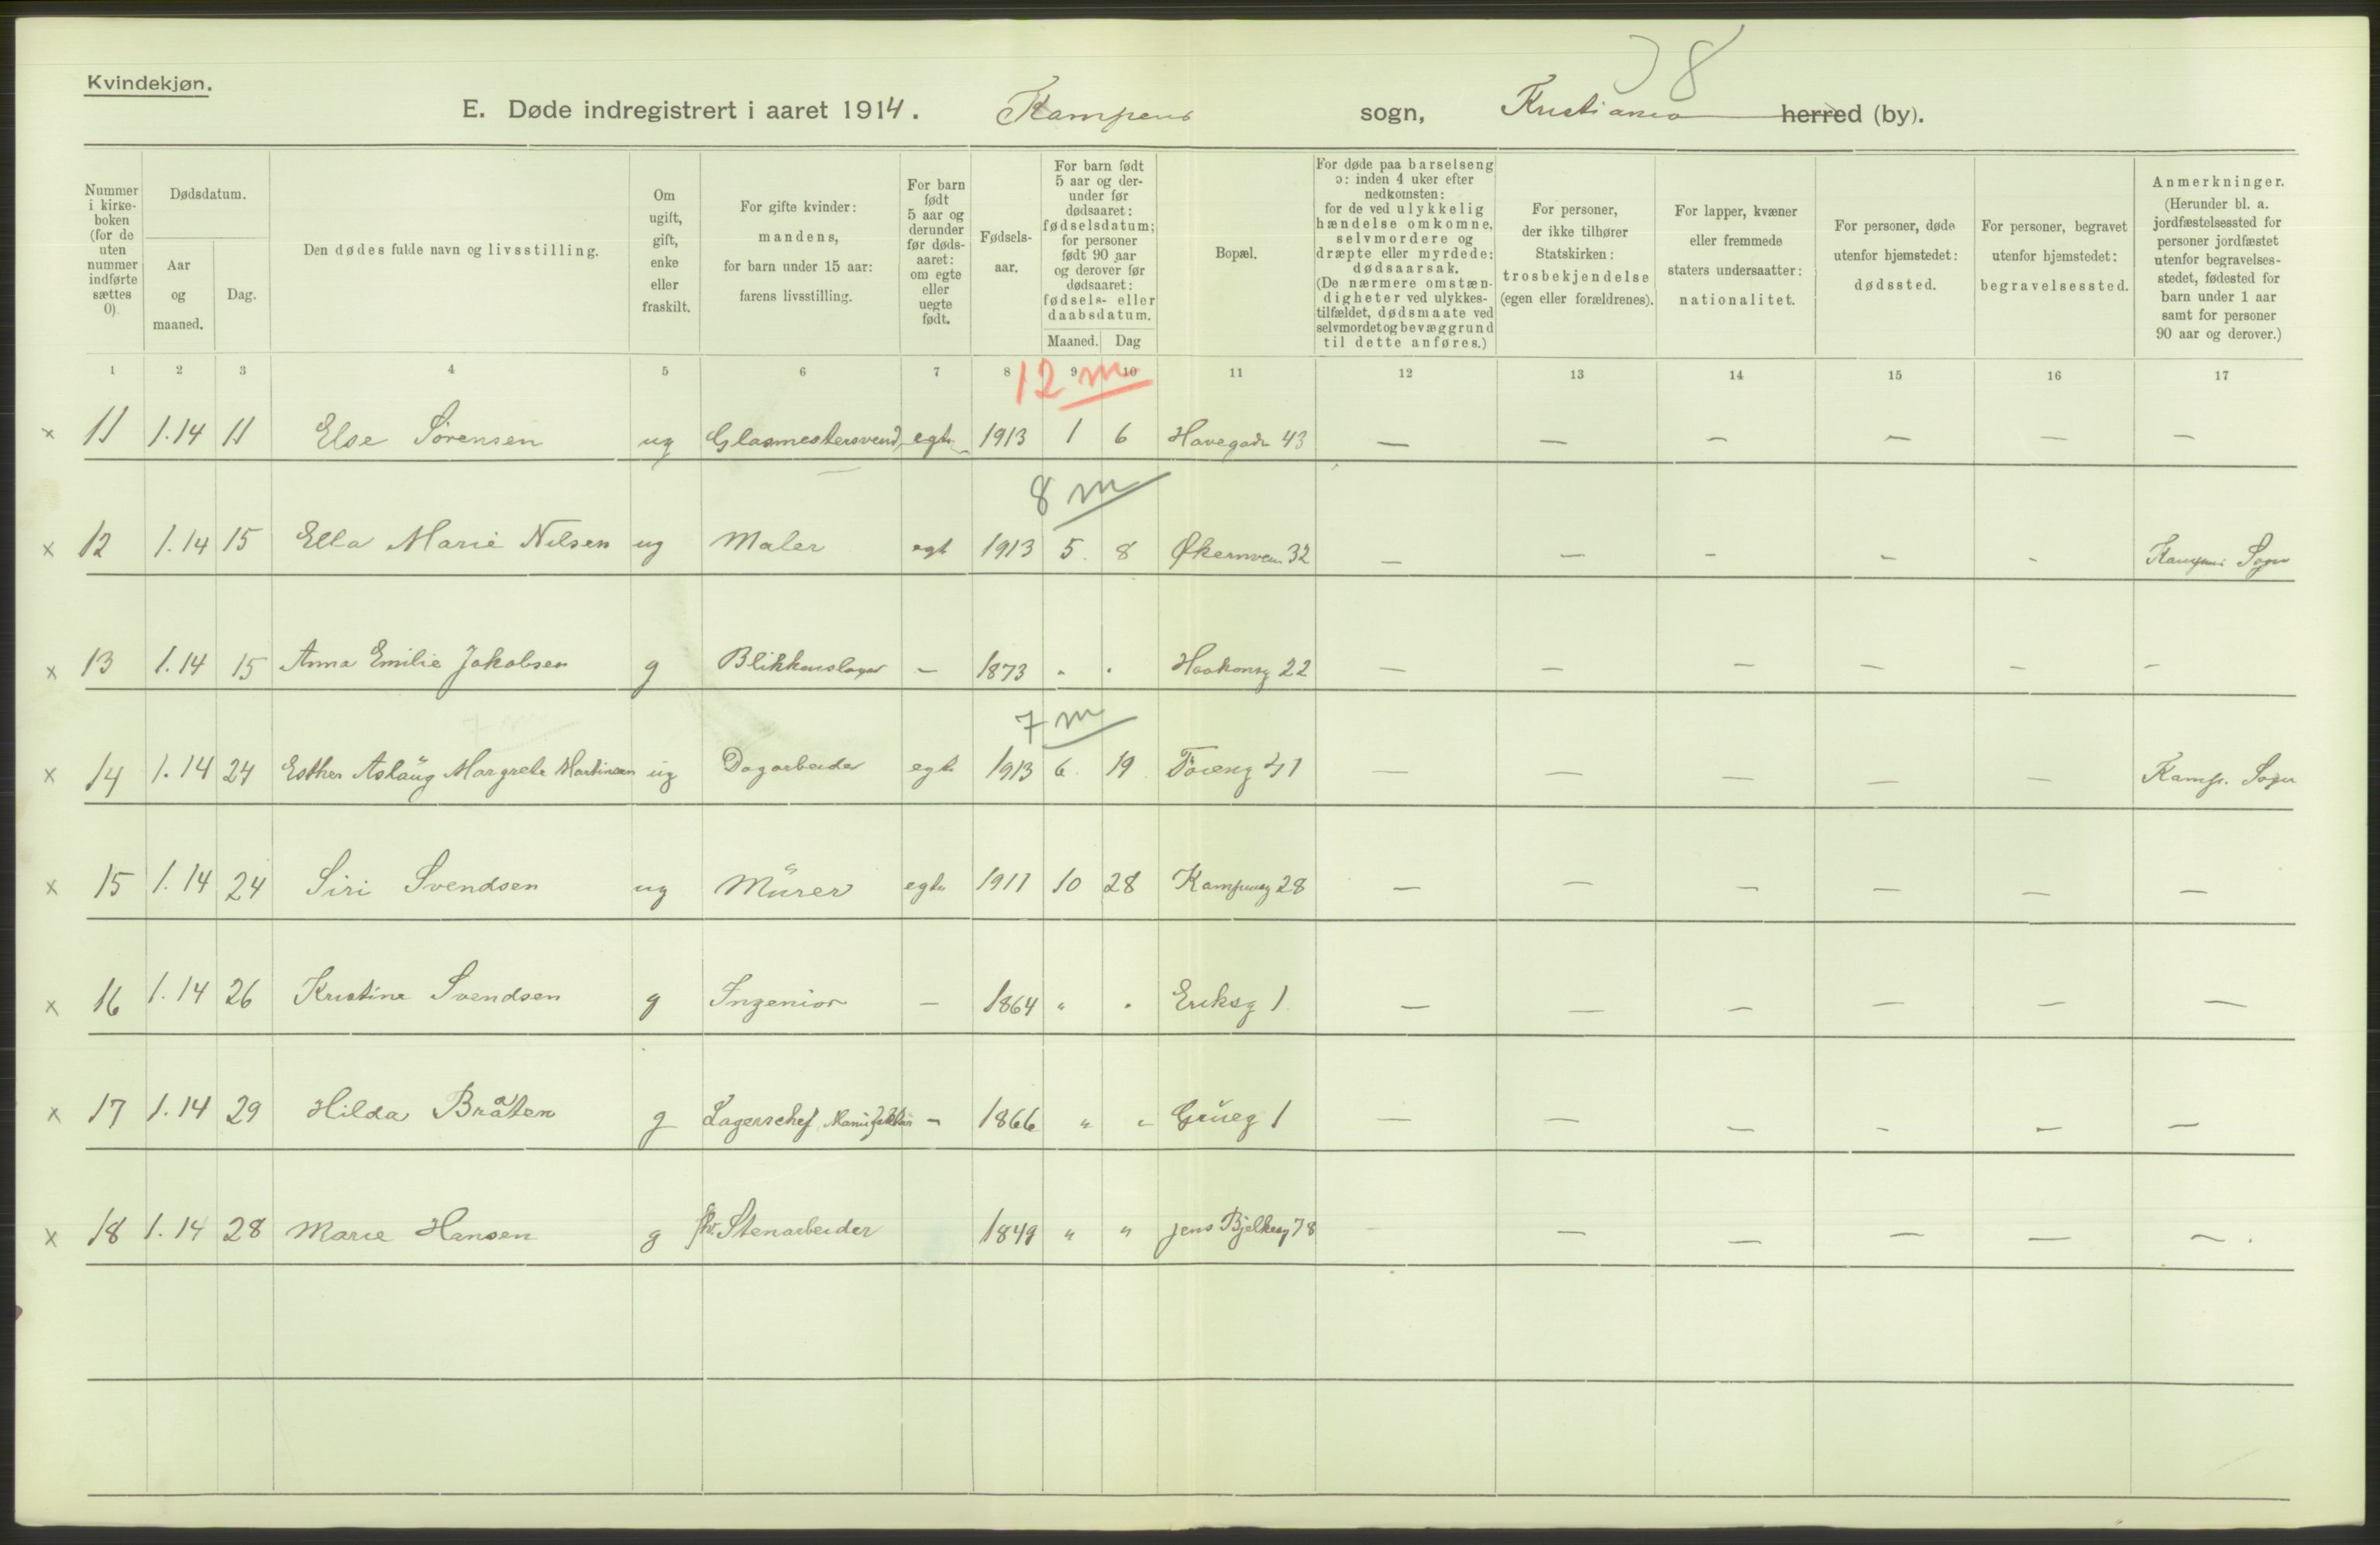 8
Kvindekjøn.
E. Døde indregistrert i aaret 1914. Kampens sogn, Kristiania herred (by).
Nummer i kirkeboken (for de uten nummer indførte sættes 0).
Dødsdatum.
Aar og maaned.
Dag.
Den dødes fulde navn og livsstilling.
Om ugift, gift, enke eller fraskilt.
For gifte kvinder: mandens, for barn under 15 aar: farens livsstilling.
For barn født 5 aar og derunder før dødsaaret: om egte eller uegte født.
Fødselsaar.
For barn født 5 aar og derunder før dødsaaret: fødselsdatum; for personer født 90 aar og derover før dødsaaret: fødsels- eller daabsdatum.
Maaned. Dag
Bopæl.
For døde paa barselseng ɔ: inden 4 uker efter nedkomsten: for de ved ulykkelig hændelse omkomne, selvmordere og dræpte eller myrdede: dødsaarsak. (De nærmere omstændigheter ved ulykkestilfældet, dødsmaate ved selvmordet og bevæggrund til dette anføres.)
For personer, der ikke tilhører Statskirken: trosbekjendelse (egen eller forældrenes).
For lapper, kvæner eller fremmede staters undersaatter: nationalitet.
For personer, døde utenfor hjemstedet: dødssted.
For personer, begravet utenfor hjemstedet: begravelsessted.
Anmerkninger. (Herunder bl. a. jordfæstelsessted for personer jordfæstet utenfor begravelsesstedet, fødested for barn under 1 aar samt for personer 90 aar og derover.)
1 2 3 4 5 6 7 8 9 10 11 12 13 14 15 16 17
12 m
x 11 1.14 11 Else Sørensen ug Glasmestersvend egte 1913 1 6 Havegade 43 — — — — — —
8 m
x 12 1.14 15 Ella Marie Nilsen ug Maler egt 1913 5. 8 Økernvein 32 — — - - - Kampens Sogn
x 13 1.14 15 Anna Emilie Jakobsen g Blikkenslager — 1873 " " Haakonsg 22 — — — — — —
7 m
x 14 1.14 24 Esther Aslaug Margrete Martinsen ug Dagarbeider egte 1913 6. 19 Tøieng 41 — — — — — Kamp. Sogn
x 15 1.14 24 Siri Svendsen ug Murer egte 1911 10 28 Kampensg 28 — — — — — —
x 16 1.14 26 Kristine Svendsen g Ingeniør — 1864 " " Eriksg 1 — — — — — —
x 17 1.14 29 Hilda Bråten g Lagerschef Manufaktur — 1866 " " Grueg 1 — — — — — —
x 18 1.14 28 Marie Hansen g fhv. Stenarbeider 1849 " " Jens Bjelkesg 78 — — — — — —